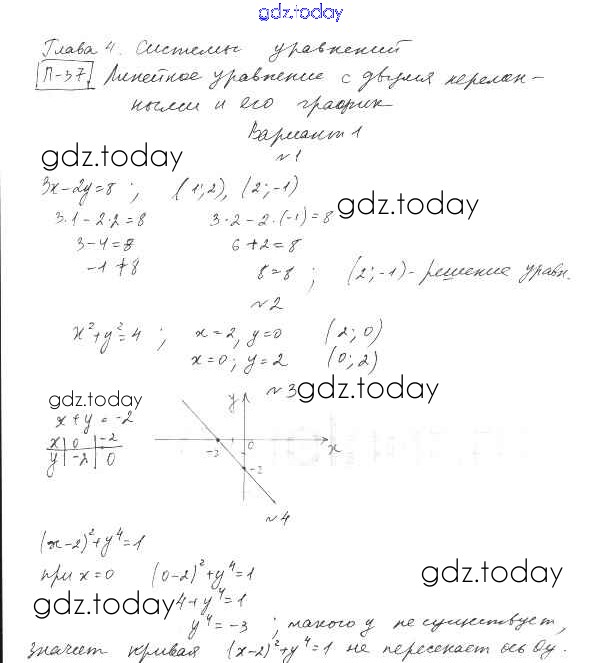 gdz.today
Глава 4. Системы уравнений
П-37. Линейное уравнение с двумя перемен-
ными и его график
Вариант 1
gdz.today
№1
3x-2y=8; (1;2), (2;-1)
gdz.today
3·1-2·2=8 3·2-2·(-1)=8
3-4=8 6+2=8
-1≠8 8=8; (2;-1)-решение уравн.
№2
x²+y²=4; x=2, y=0 (2;0)
x=0; y=2 (0;2)
№3 gdz.today
gdz.today
x+y=-2
x | 0 | -2
y | -2 | 0
y
0
x
-2
№4
(x-2)²+y⁴=1
при x=0 (0-2)²+y⁴=1
gdz.today
gdz.today 4+y⁴=1
y⁴=-3; такого y не существует,
значит кривая (x-2)²+y⁴=1 не пересекает ось Oy.